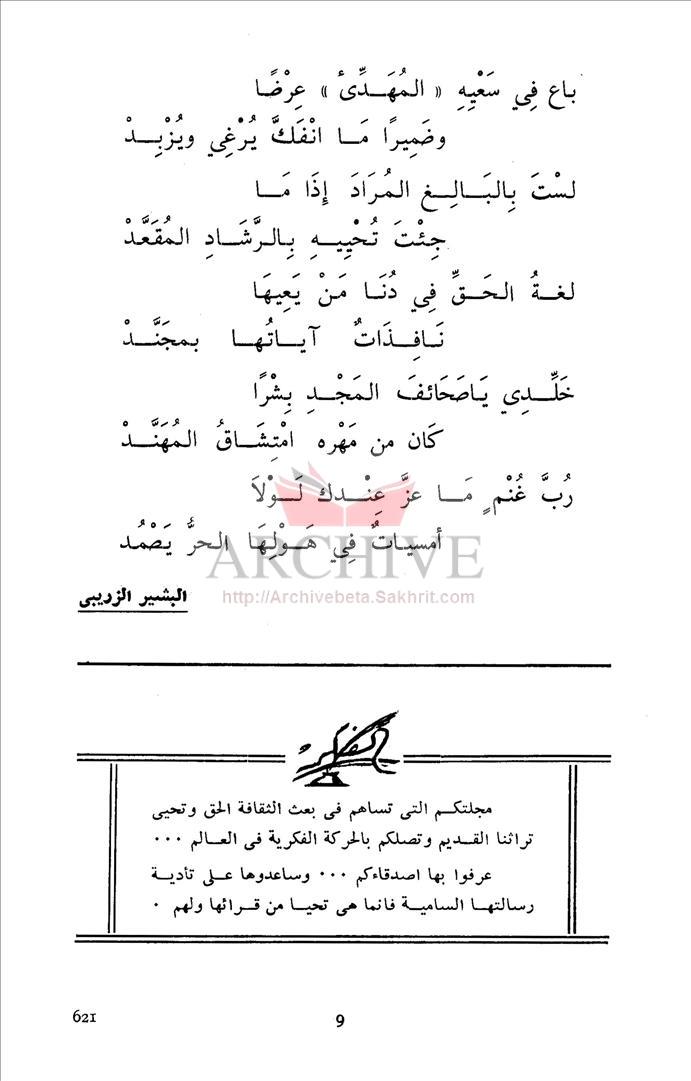 باع فِي سَعْيِهِ « الـمُهَـدِّئُ » عِرْضًا
وضَمِيرًا مَـا انْفَكَّ يُرْغِي ويُزْبِـدْ
لسْتَ بِالبَـالِـغِ المُرَادَ إِذَا مَـا
جِئْتَ تُحْيِيـهِ بِـالـرَّشَـادِ المُقَعَّدْ
لغـةُ الحَـقِّ فِي دُنَـا مَنْ يَعِيهَا
نَـافِـذَاتٌ آيـاتُـهـا بـمجَنَّـدْ
خَلِّـدِي يَـاصَحَائفَ المَجْـدِ بِشْرًا
كَان من مَهْره امْتِشَـاقُ المُهَنَّـدْ
رُبَّ غُنْمٍ مَـا عزَّ عِنْـدك لَـوْلاَ
أمسيـاتٌ فِي هَـوْلِـهَا الـحرُّ يَصْمُد
ARCHIVE
http://Archivebeta.Sakhrit.com
البشير الزريبى
الفكر
مجلتكـم التى تساهم فى بعث الثقافة الحق وتحيى
تراثنا القـديم وتصلكم بالحركة الفكرية فى العـالم ٠٠٠
عرفوا بها اصدقاءكم ٠٠٠ وساعدوها على تأديـة
رسالتهـا الساميـة فانما هى تحيـا من قـرائها ولهم ٠
621
9